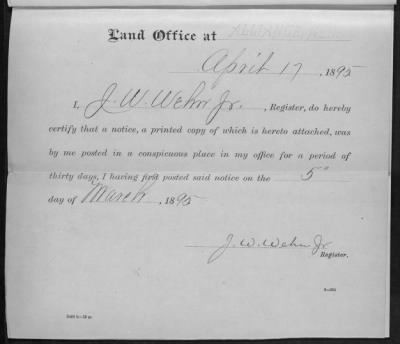 Land Office at ALLIANCE, NEB.
April 17, 1895
I, J. W. Wehn Jr., Register, do hereby
certify that a notice, a printed copy of which is hereto attached, was
by me posted in a conspicuous place in my office for a period of
thirty days, I having first posted said notice on the 5"
day of March, 1895
J. W. Wehn Jr
Register.